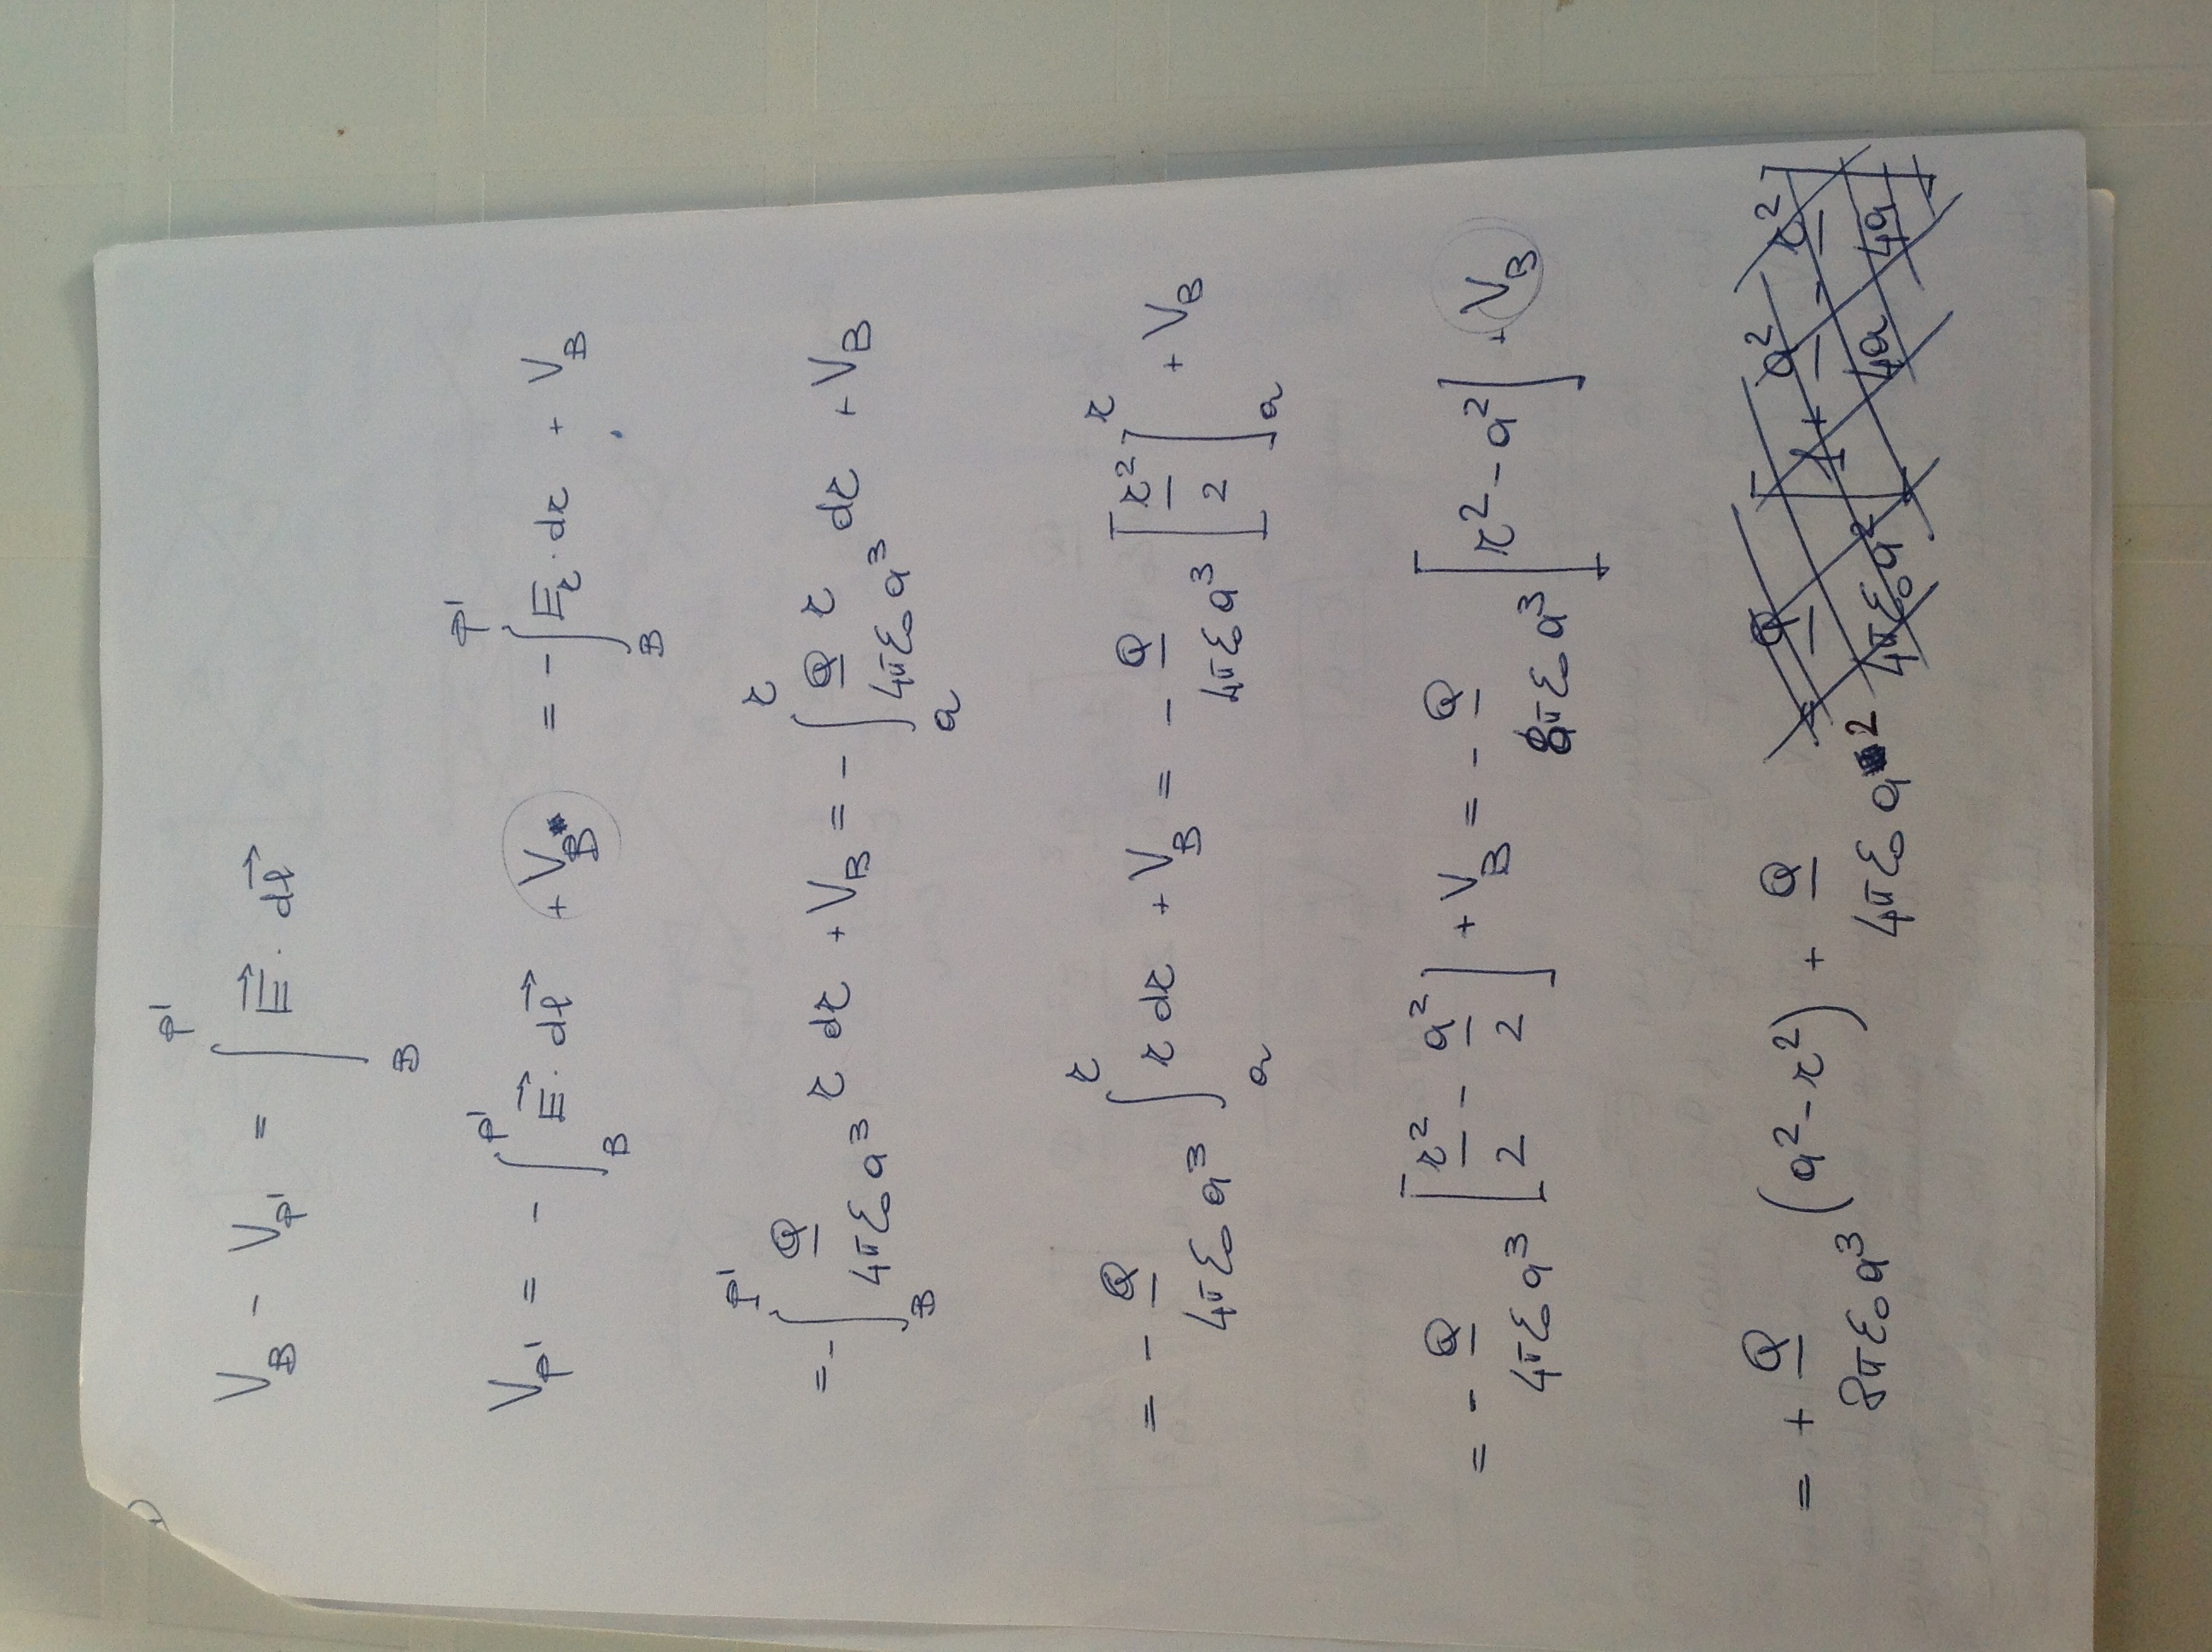 V_B - V_P' = ∫_B^P' E⃗ · dl⃗
V_P' = - ∫_B^P' E⃗ · dl⃗ + V_B = - ∫_B^P' E_r · dr + V_B
= - ∫_B^P' Q/(4πε₀a³) r dr + V_B = - ∫_a^r Q r/(4πε₀a³) dr + V_B
= - Q/(4πε₀a³) ∫_a^r r dr + V_B = - Q/(4πε₀a³) [r²/2]_a^r + V_B
= - Q/(4πε₀a³) [r²/2 - a²/2] + V_B = - Q/(8πε₀a³) [r² - a²] + V_B
= + Q/(8πε₀a³) (a² - r²) + Q/(4πε₀a²) = Q/(4πε₀a²) [1 + a²/4a - r²/4a]